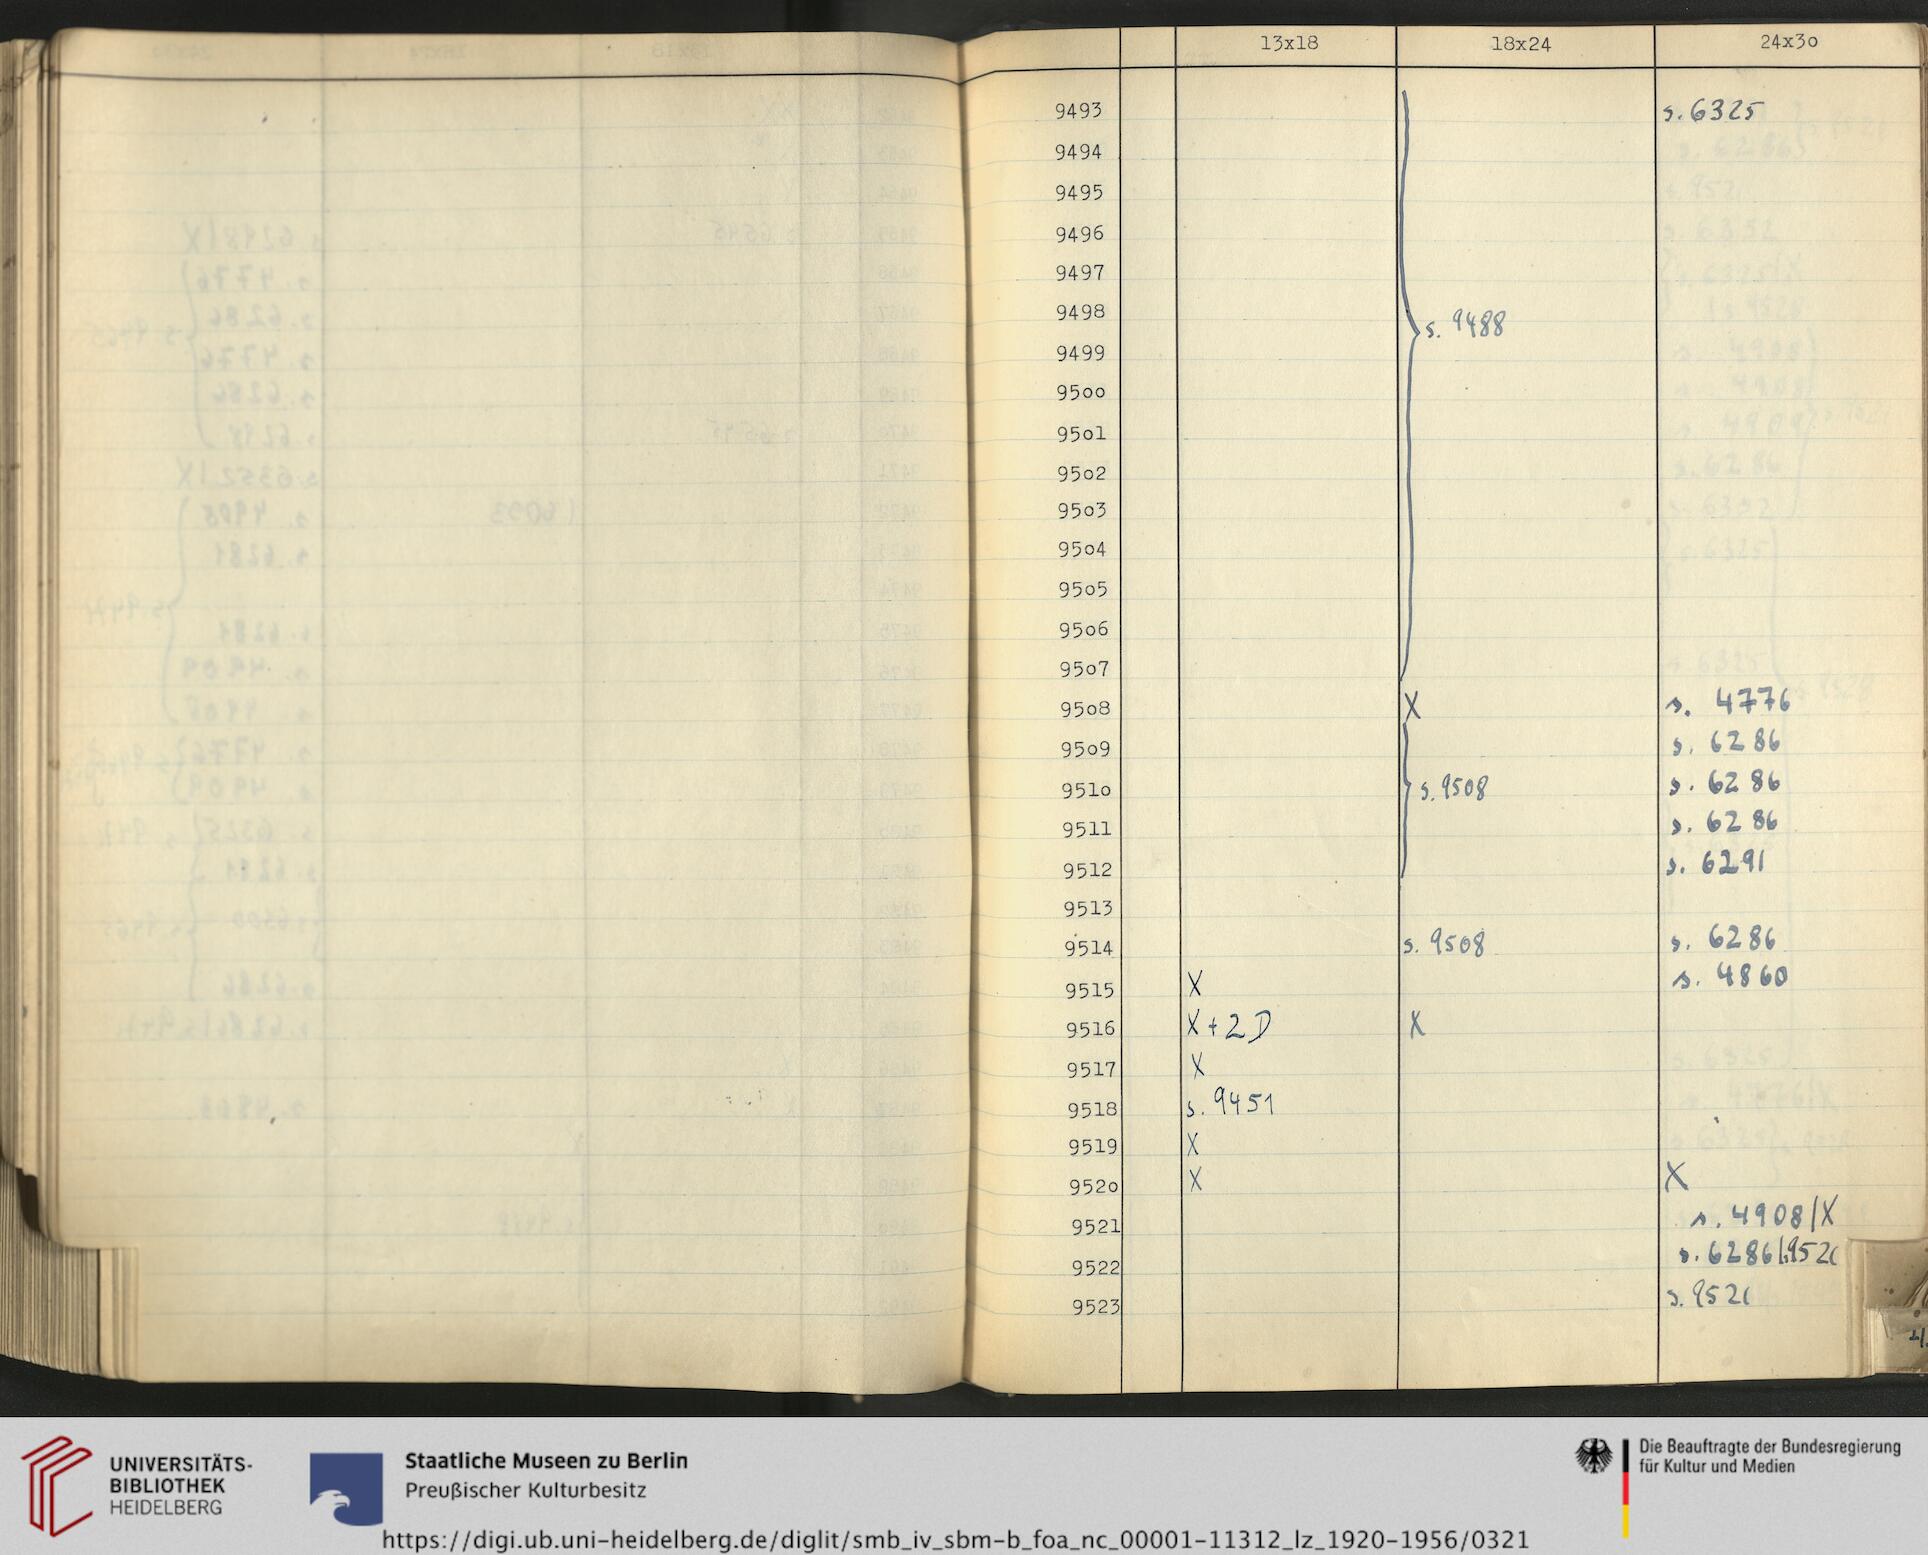 13x18 18x24 24x3o
9493 s. 6325
9494
9495
9496
9497
9498 s. 9488
9499
95oo
95o1
95o2
95o3
95o4
95o5
95o6
95o7
95o8 X s. 4776
95o9 s. 6286
951o s. 9508 s. 6286
9511 s. 6286
9512 s. 6291
9513
9514 s. 9508 s. 6286
9515 X s. 4860
9516 X + 2 D X
9517 X
9518 s. 9451
9519 X
952o X X
9521 s. 4908/X
9522 s. 6286/s.9521
9523 s. 9521
UNIVERSITÄTS-
BIBLIOTHEK
HEIDELBERG
Staatliche Museen zu Berlin
Preußischer Kulturbesitz
Die Beauftragte der Bundesregierung
für Kultur und Medien
https://digi.ub.uni-heidelberg.de/diglit/smb_iv_sbm-b_foa_nc_00001-11312_lz_1920-1956/0321